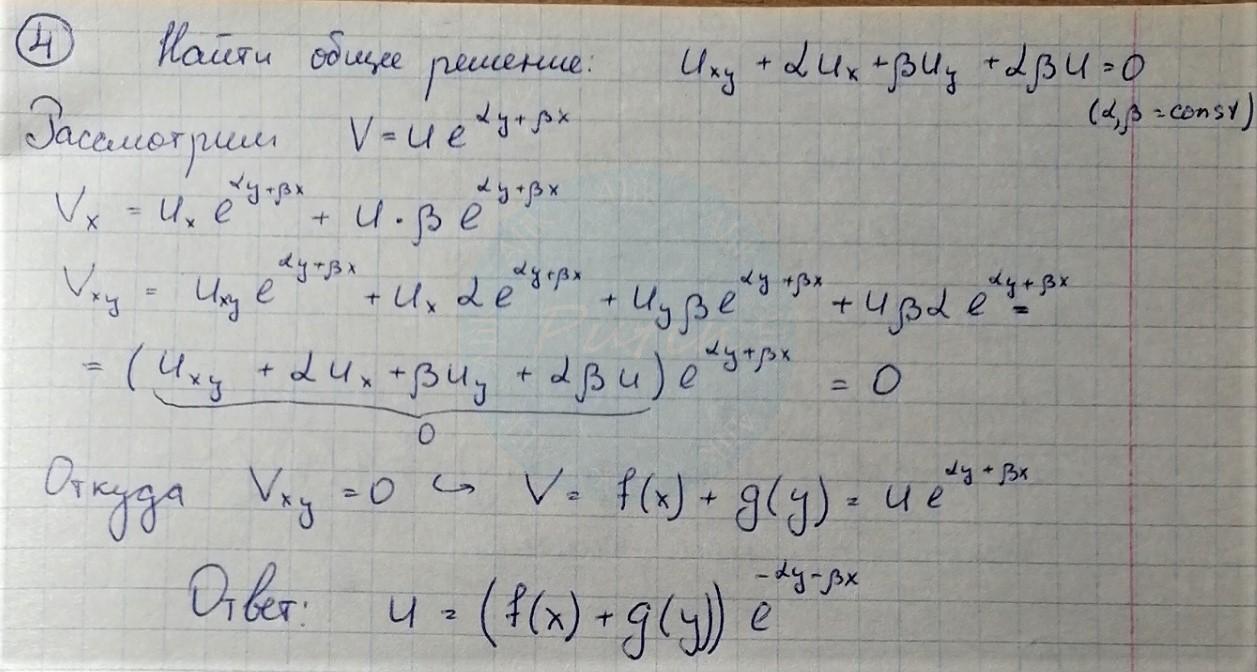 ④ Найти общее решение: u_xy + αu_x + βu_y + αβu = 0
(α, β = const)
Рассмотрим V = u e^{αy+βx}
V_x = u_x e^{αy+βx} + u·β e^{αy+βx}
V_xy = u_xy e^{αy+βx} + u_x α e^{αy+βx} + u_y β e^{αy+βx} + u β α e^{αy+βx} =
= (u_xy + αu_x + βu_y + αβu) e^{αy+βx} = 0
0
Откуда V_xy = 0 ↪ V = f(x) + g(y) = u e^{αy+βx}
Ответ: u = (f(x) + g(y)) e^{-αy-βx}